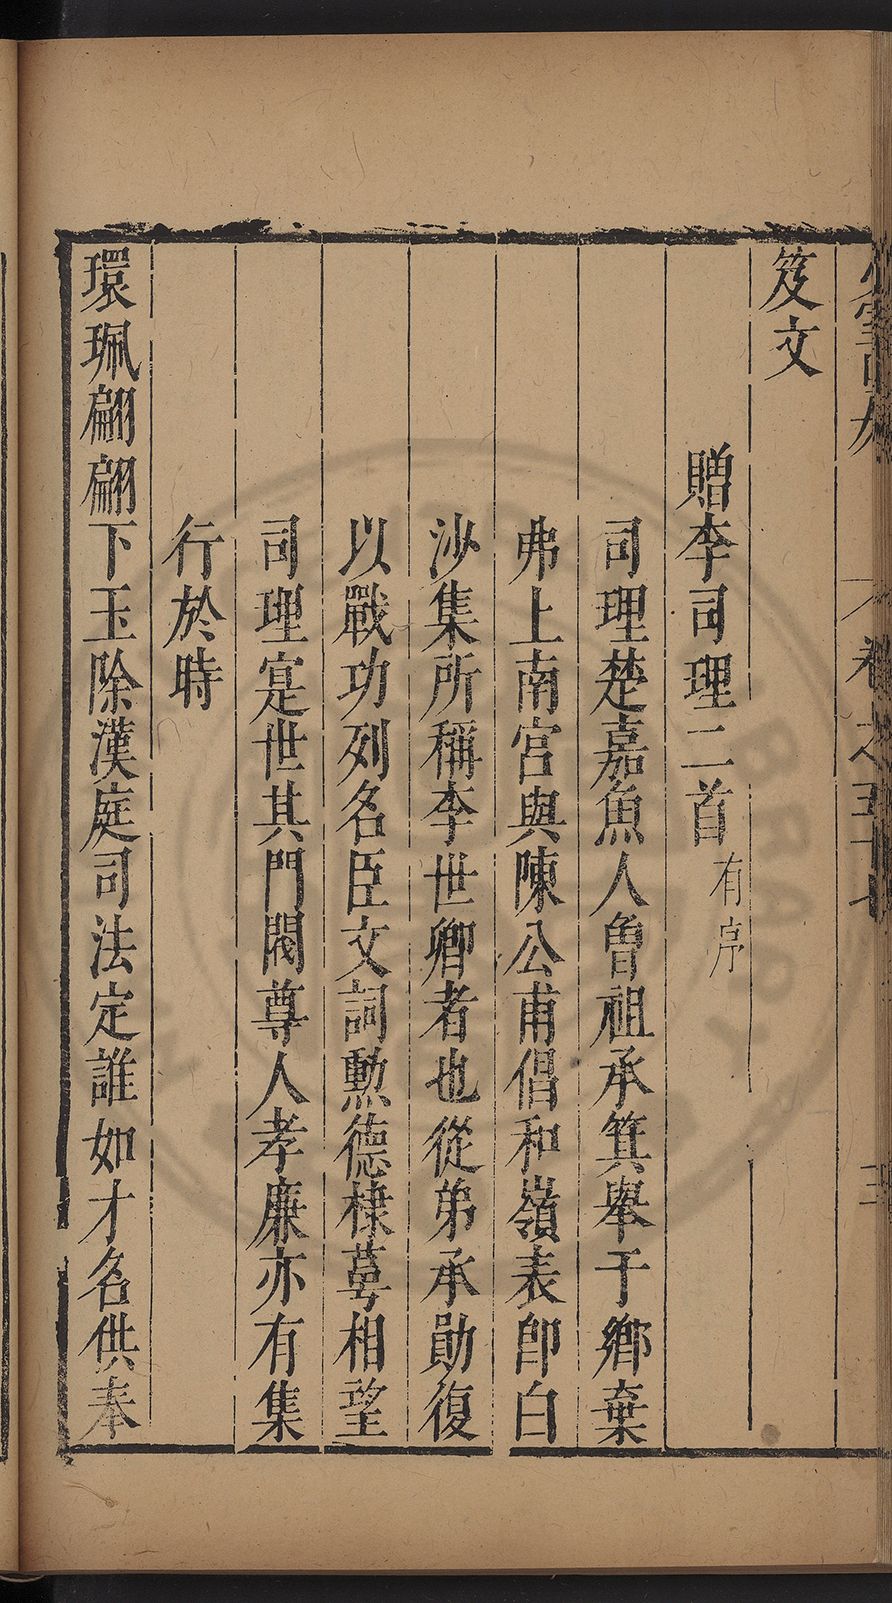 卷之五十七
三
笈文
贈李司理二首有序
司理楚嘉魚人曾祖承箕舉于鄉棄
弗上南宫與陳公甫倡和嶺表卽白
沙集所稱李世卿者也從弟承勛復
以戰功列名臣文詞勲德棣萼相望
司理寔世其門閥尊人孝廉亦有集
行於時
環珮翩翩下玉除漢庭司法定誰如才名供奉